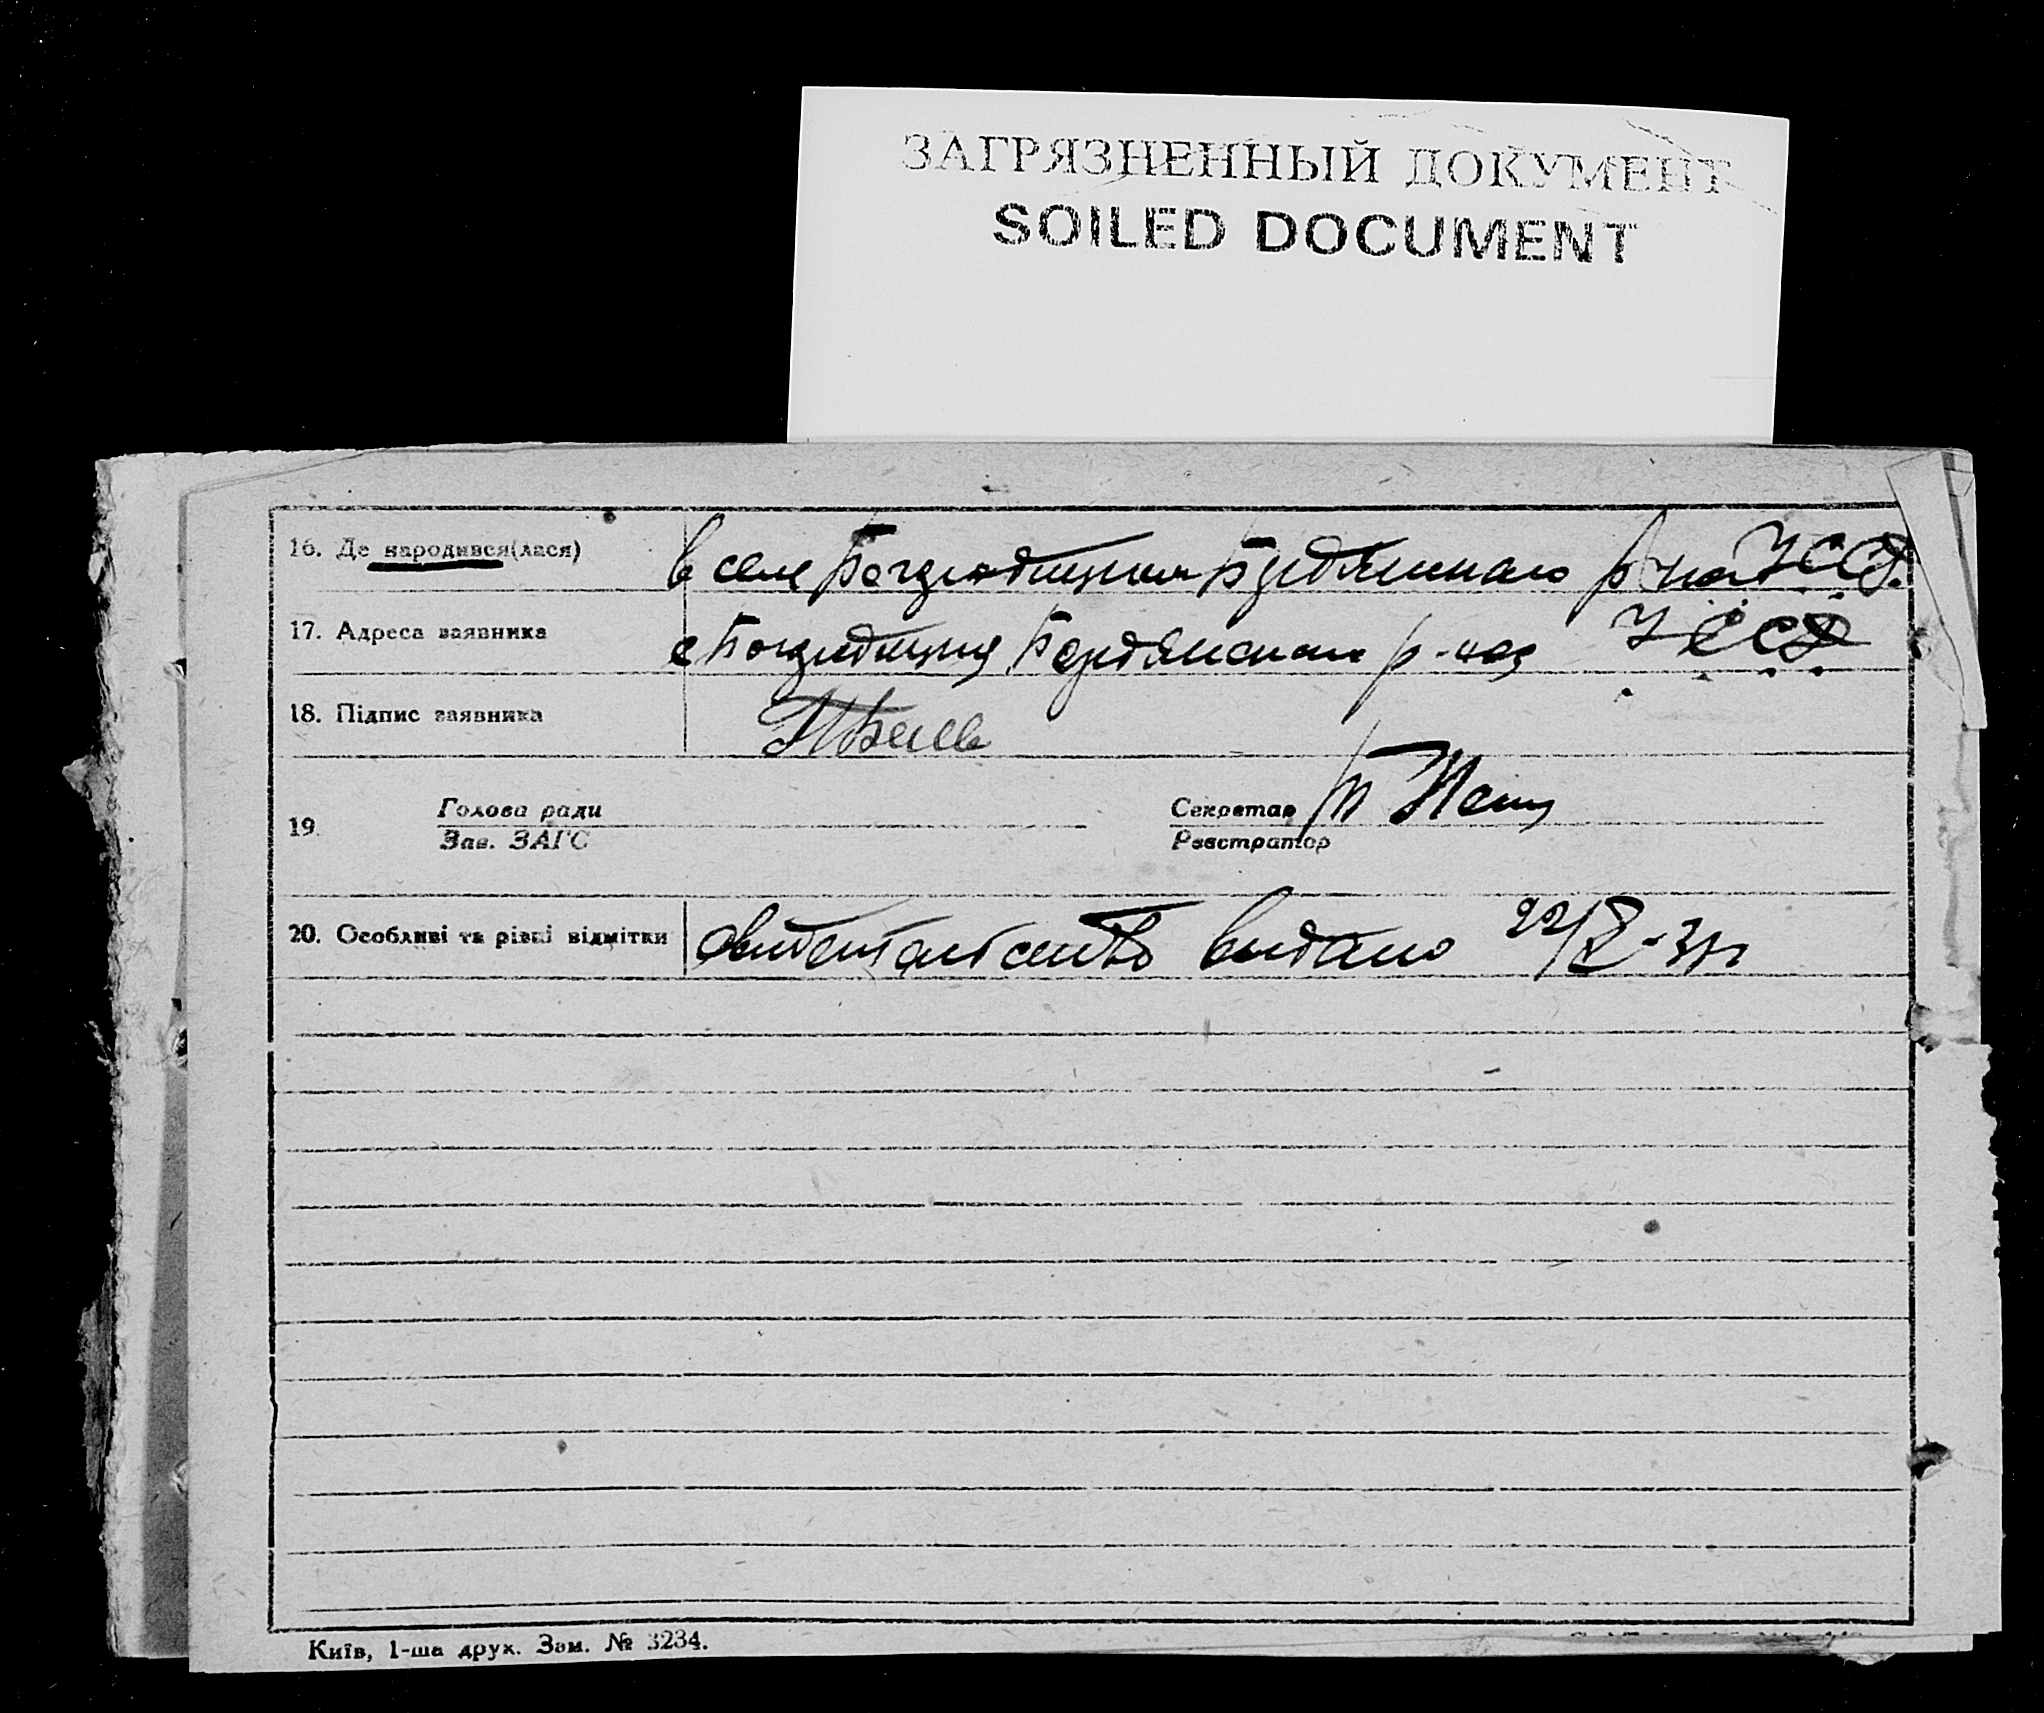 ЗАГРЯЗНЕННЫЙ ДОКУМЕНТ
SOILED DOCUMENT
16. Де народився(лася) в селе Бердянского р-на УССР
17. Адреса заявника с Бердянского р-на УССР
18. Підпис заявника
19. Голова ради Секретар
Зав. ЗАГС Реєстратор
20. Особливі та різні відмітки видано 22/X-
Київ, 1-ша друк. Зам. № 3234.